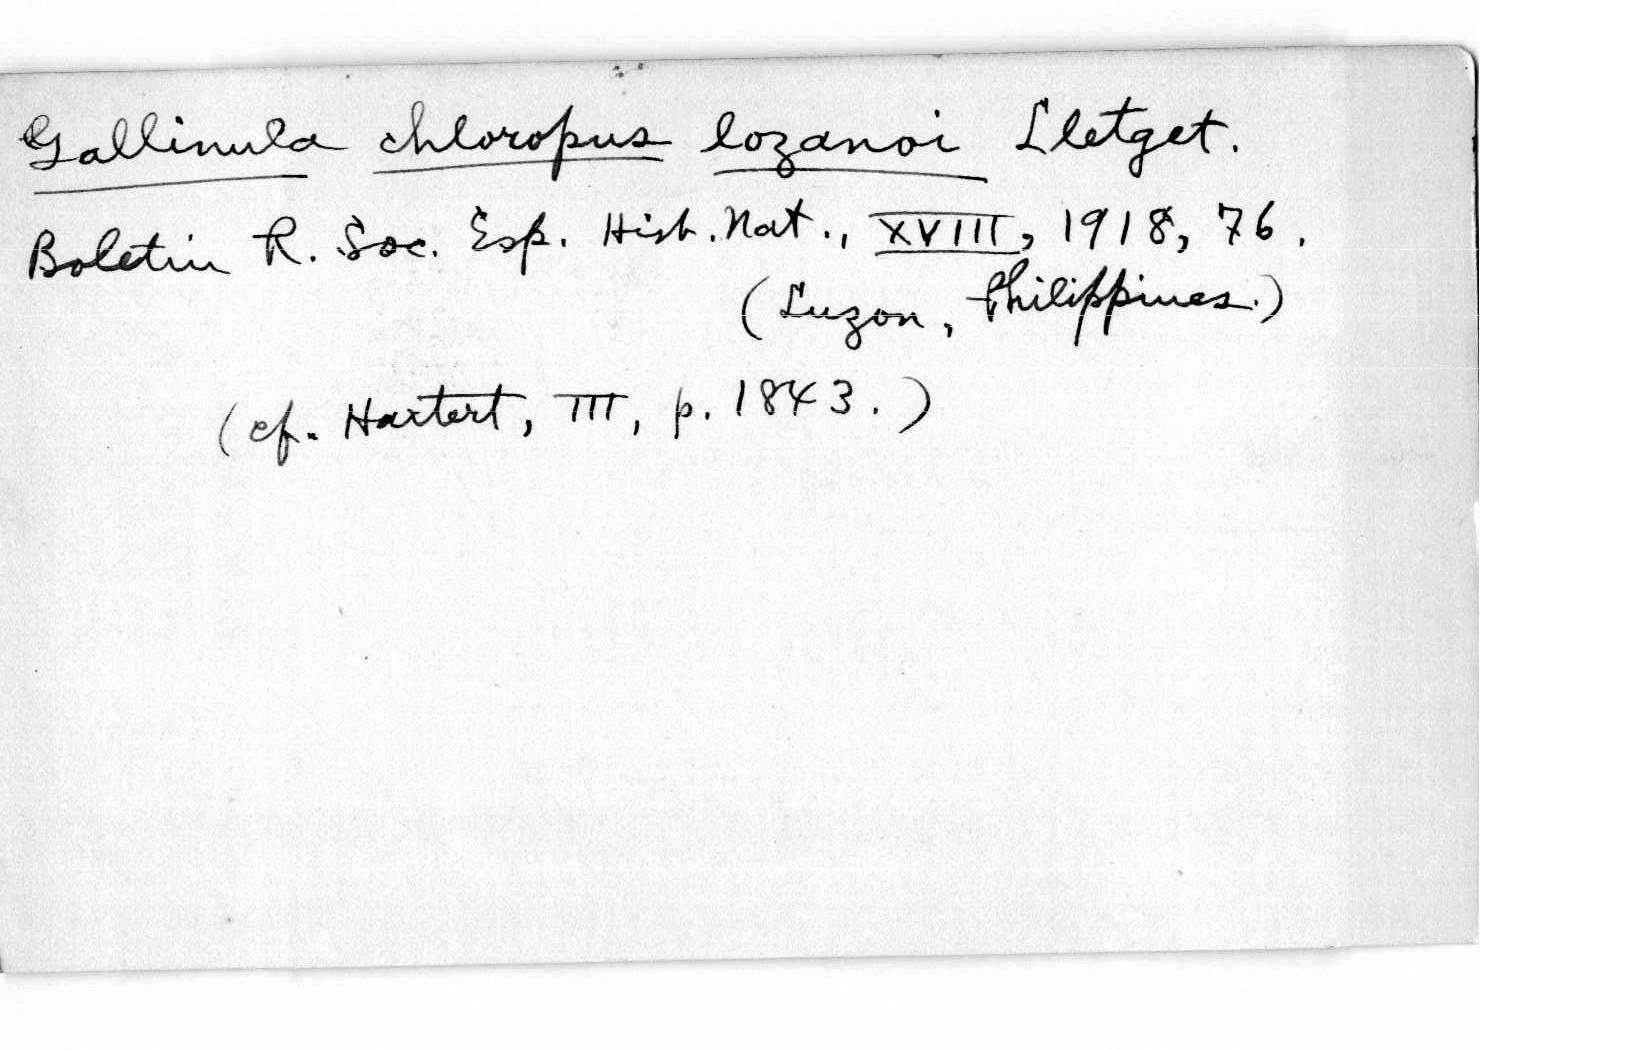 Gallinula chloropus lozanoi Lletget.
Boletin R. Soc. Esp. Hist. Nat., XVIII, 1918, 76.
(Luzon, Philippines.)
(cf. Hartert, III, p. 1843.)